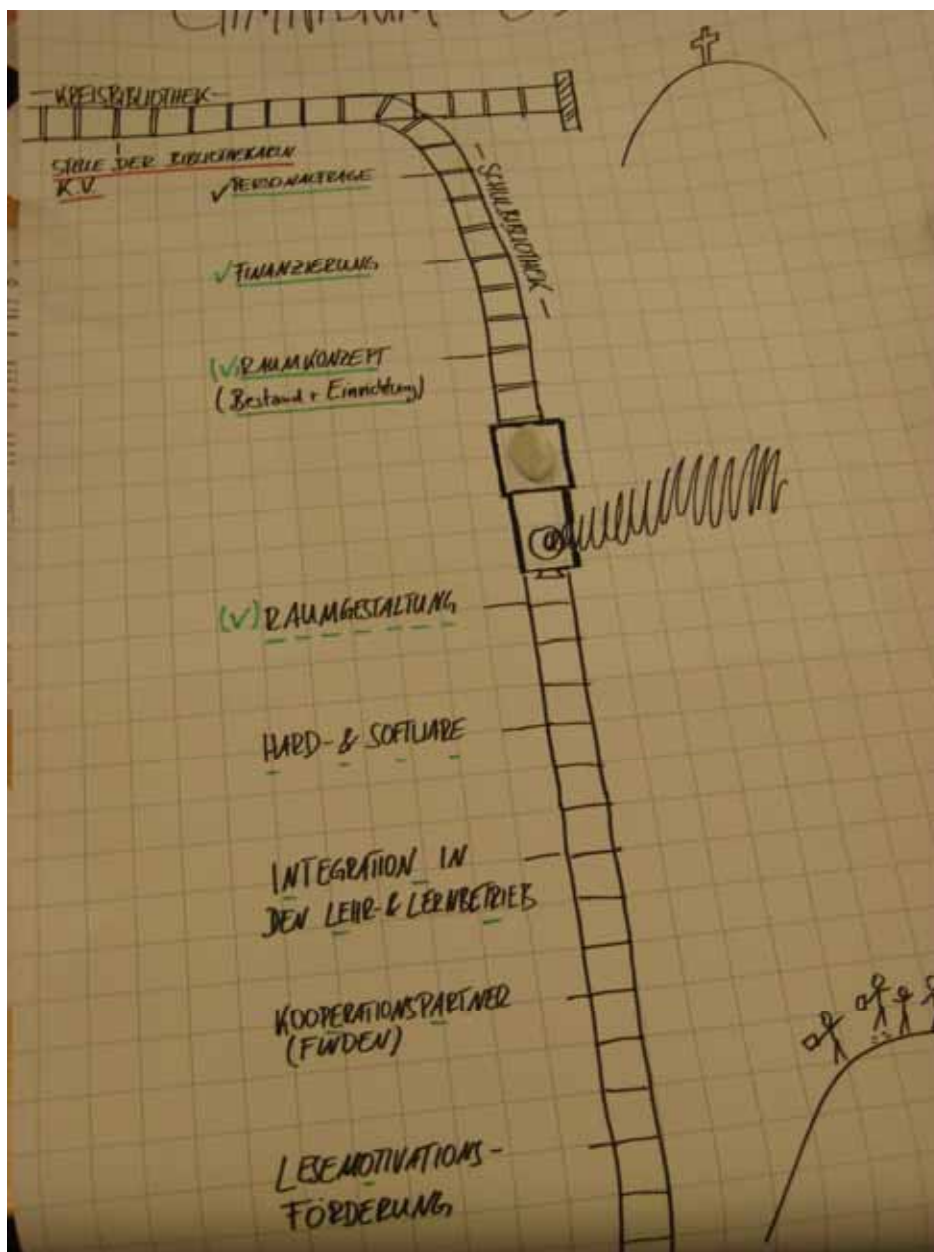 GYMNASIUM
- KREISBIBLIOTHEK -
STELLE DER BIBLIOTHEKARIN
K.V.
- SCHULBIBLIOTHEK -
✓ PERSONALFRAGE
✓ FINANZIERUNG
(✓) RAUMKONZEPT
(Bestand + Einrichtung)
(✓) RAUMGESTALTUNG
HARD- & SOFTWARE
INTEGRATION IN
DEN LEHR- & LERNBETRIEB
KOOPERATIONSPARTNER
(FINDEN)
LESEMOTIVATIONS-
FÖRDERUNG